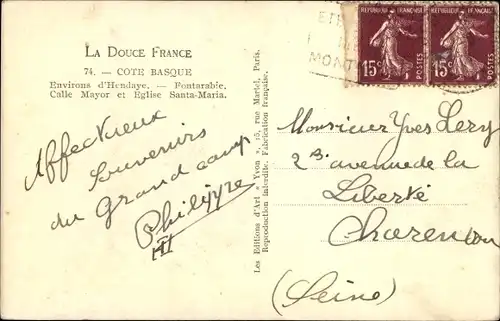 La Douce France
74. — COTE BASQUE
Environs d'Hendaye. — Fontarabie.
Calle Mayor et Eglise Santa-Maria.
Affectueux
Souvenirs
du Grand camp
Philippe
Les Editions d'Art "Yvon", 15, rue Martel, Paris.
Reproduction interdite. Fabrication française.
ETE
MONT
REPUBLIQUE FRANÇAISE
15c
POSTES
REPUBLIQUE FRANÇAISE
15c
POSTES
Monsieur Yves Lery
2 Bis avenue de la
Liberté
Charenton
(Seine)